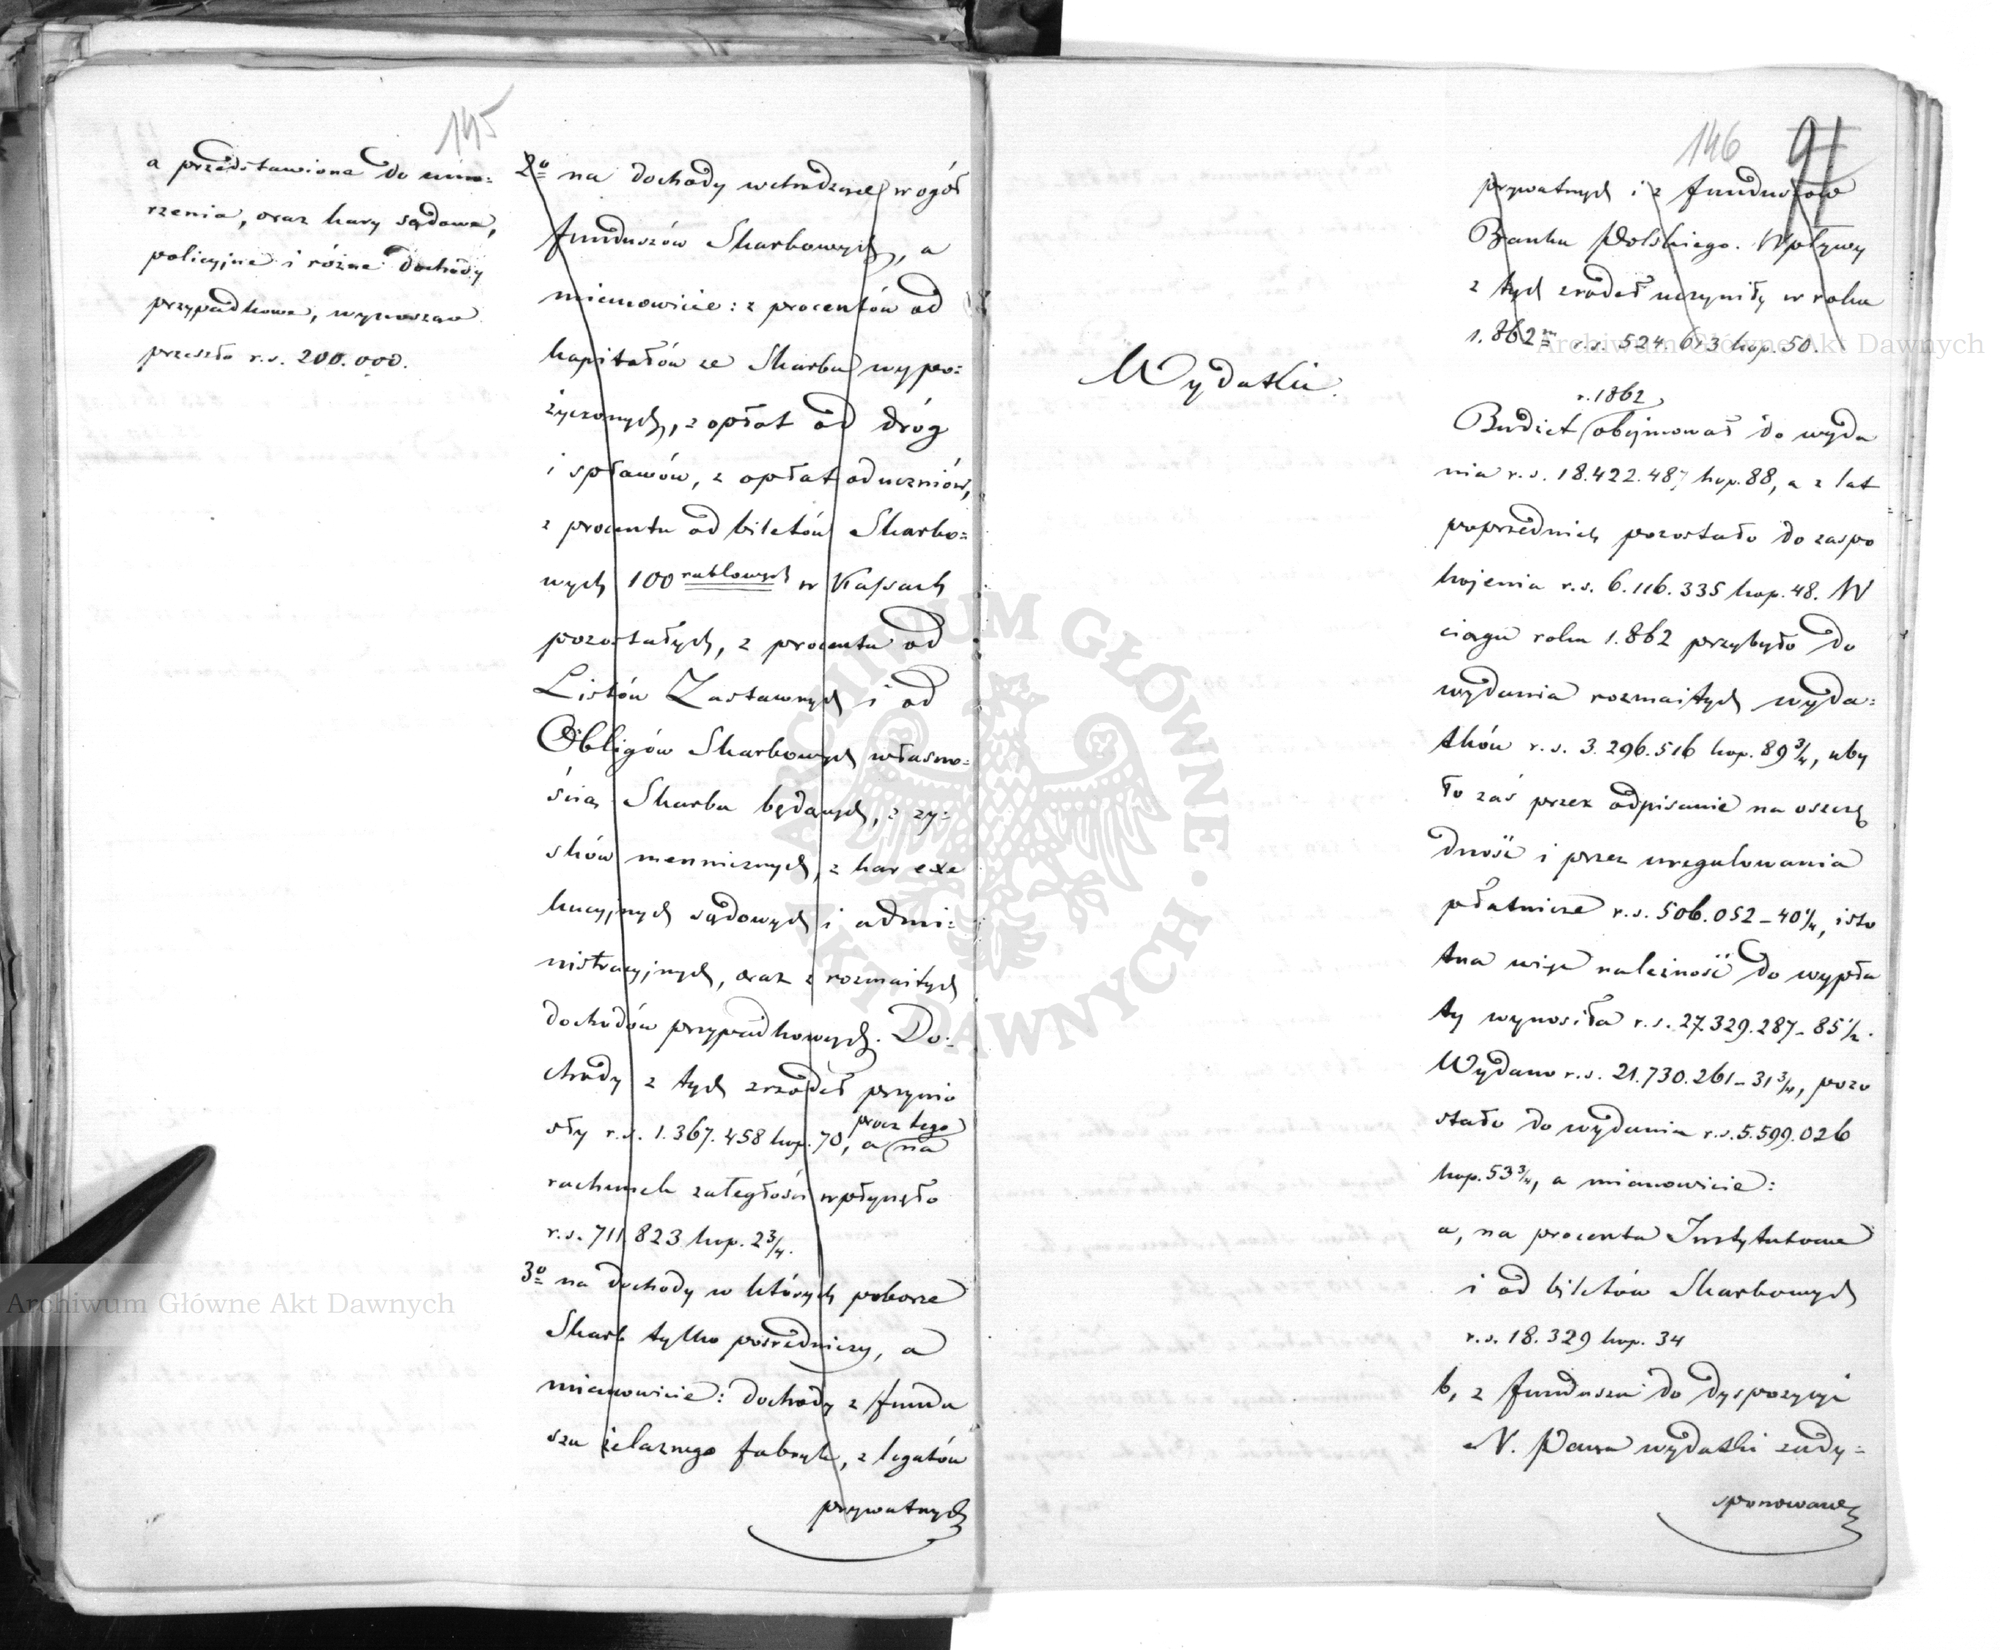 145
a przedstawione do umo=
rzenia, oraz kary sądowe,
policyjne i różne dochody
przypadkowe, wynosząc
przeszło r.s. 200.000.
2o na dochody wchodzące w ogół
funduszów Skarbowych, a
mianowicie: z procentów od
kapitałów ze Skarbu wypo=
życzonych, z opłat od dróg
i spławów, z opłat od uczniów,
z procentu od biletów Skarbo=
wych 100 rublowych w Kassach
pozostałych, z procentu od
Listów Zastawnych i od
Obligów Skarbowych własno=
ścią Skarbu będących, z zy=
sków menniczych, z kar exe
kucyjnych sądowych i admi=
nistracyjnych, oraz z rozmaitych
dochodów przypadkowych. Do=
chody z tych zrzódeł przynio
sły r.s. 1.367.458 kop. 70, a prócz tego na
rachunek zaległości wpłynęło
r.s. 711.823 kop. 2 3/4.
3o na dochody w których poborze
Skarb tylko pośredniczy, a
mianowicie: dochody z fundu
szu żelaznego fabryk, z legatów
prywatnych
146
91
prywatnych i z funduszów
Banku Polskiego. Wpływy
z tych zrodeł uczyniły w roku
1.862m r.s. 524.613 kop. 50.
Wydatki.
r. 1862
Budżet obejmował do wyda
nia r.s. 18.422.487 kop. 88, a z lat
poprzednich pozostało do zaspo
kojenia r.s. 6.116.335 kop. 48. W
ciągu roku 1.862 przybyło do
wydania rozmaitych wyda=
tków r.s. 3.296.516 kop. 89 3/4, uby
ło zaś przez odpisanie na oszczę
dność i przez uregulowania
płatnicze r.s. 506.052 - 40 1/4, isto
tna więc należność do wypła
ty wynosiła r.s. 27.329.287 - 85 1/2.
Wydano r.s. 21.730.261 - 31 3/4, pozo
stało do wydania r.s. 5.599.026
kop. 53 3/4, a mianowicie:
a, na procenta Instytutowe
i od biletów Skarbowych
r.s. 18.329 kop. 34
b, z funduszu do dyspozycyi
N. Pana wydatki zady=
sponowane
Archiwum Główne Akt Dawnych
Archiwum Główne Akt Dawnych
ARCHIWUM GŁÓWNE
AKT DAWNYCH